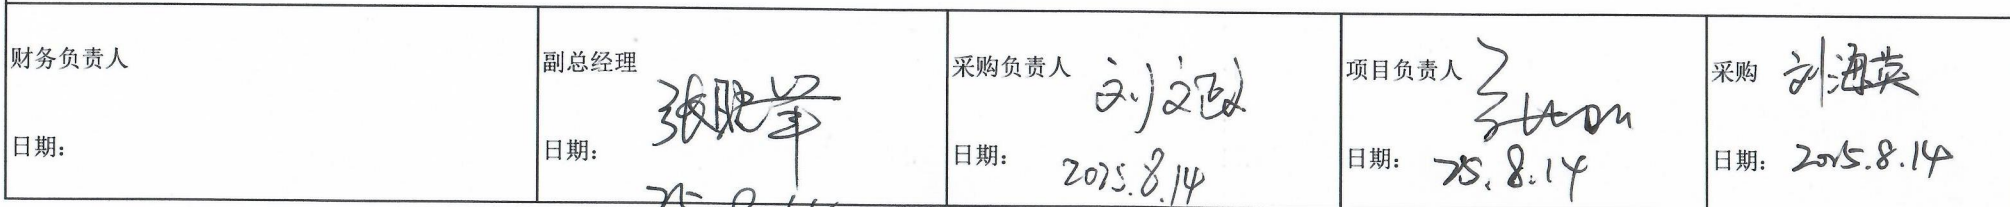 财务负责人
日期：
副总经理
日期：
采购负责人 刘文
日期： 2025.8.14
项目负责人
日期： 25.8.14
采购 刘海英
日期： 2025.8.14